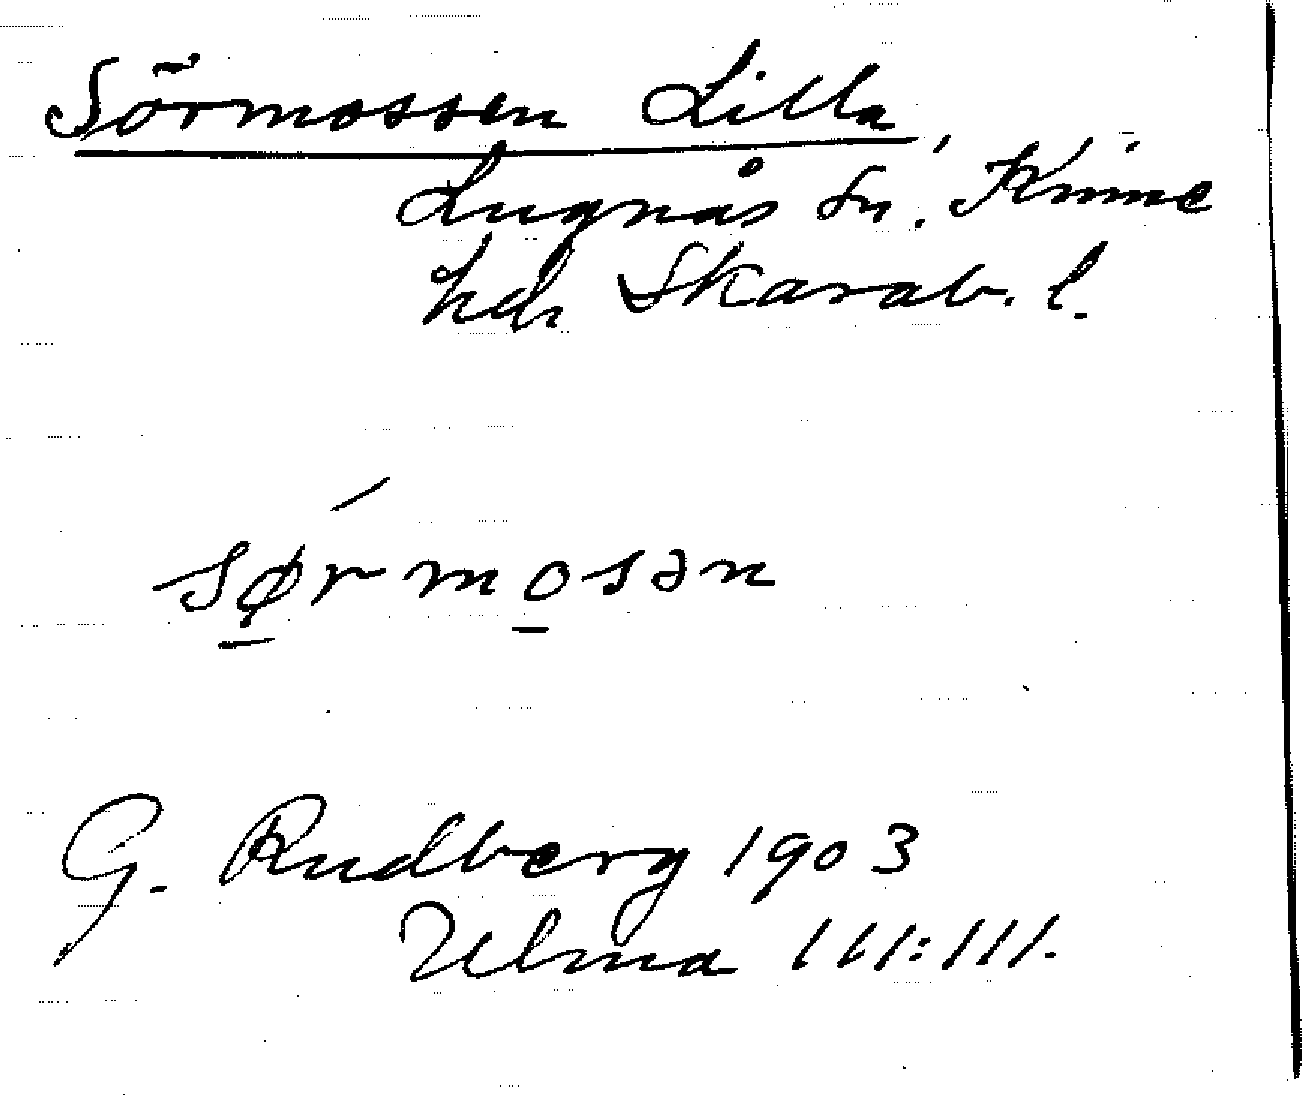 Sörmossen Lilla,
Lugnås sn. Kinne
hd Skarab. l.
sørmosən
G. Rudberg 1903
Ulma 111:111.